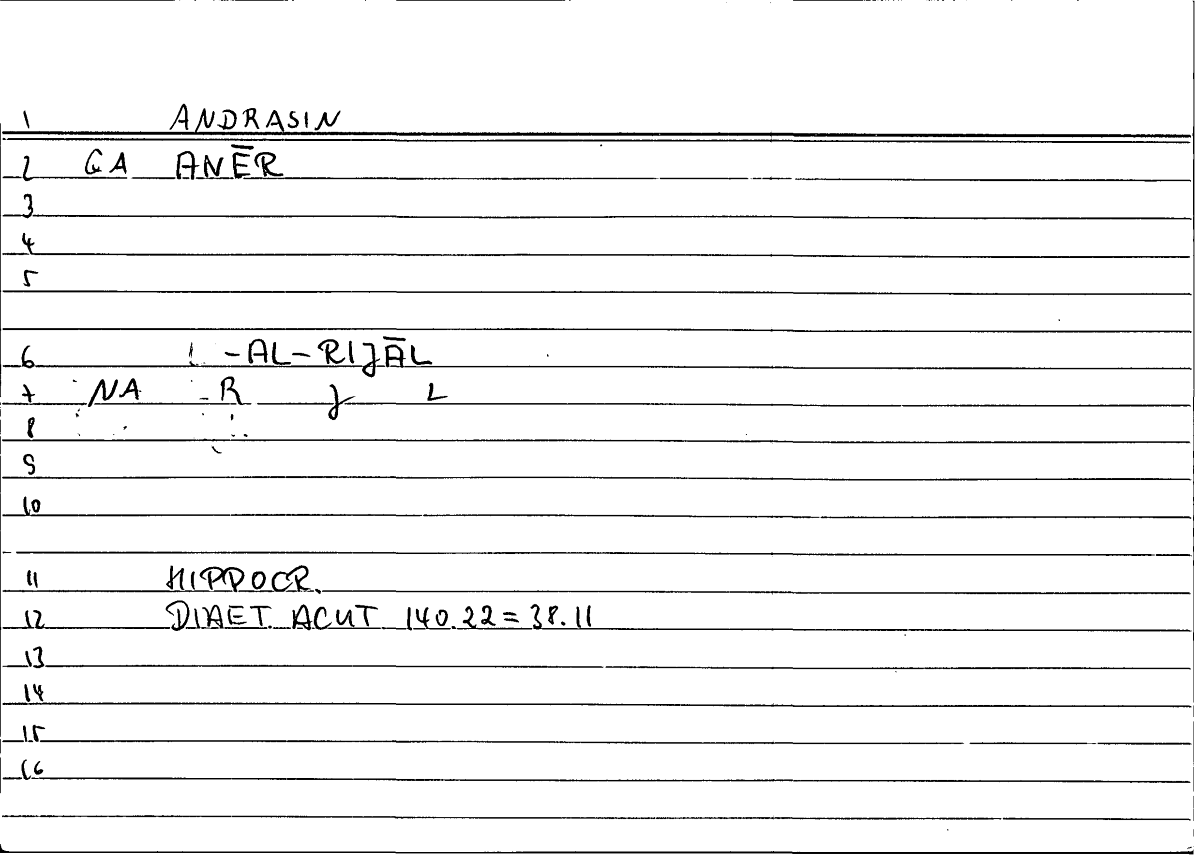 1 ANDRASIN
2 GA ANĒR
3
4
5
6 -AL-RIJĀL
7 NA -R J L
8
9
10
11 HIPPOCR.
12 DIAET. ACUT 140.22=38.11
13
14
15
16